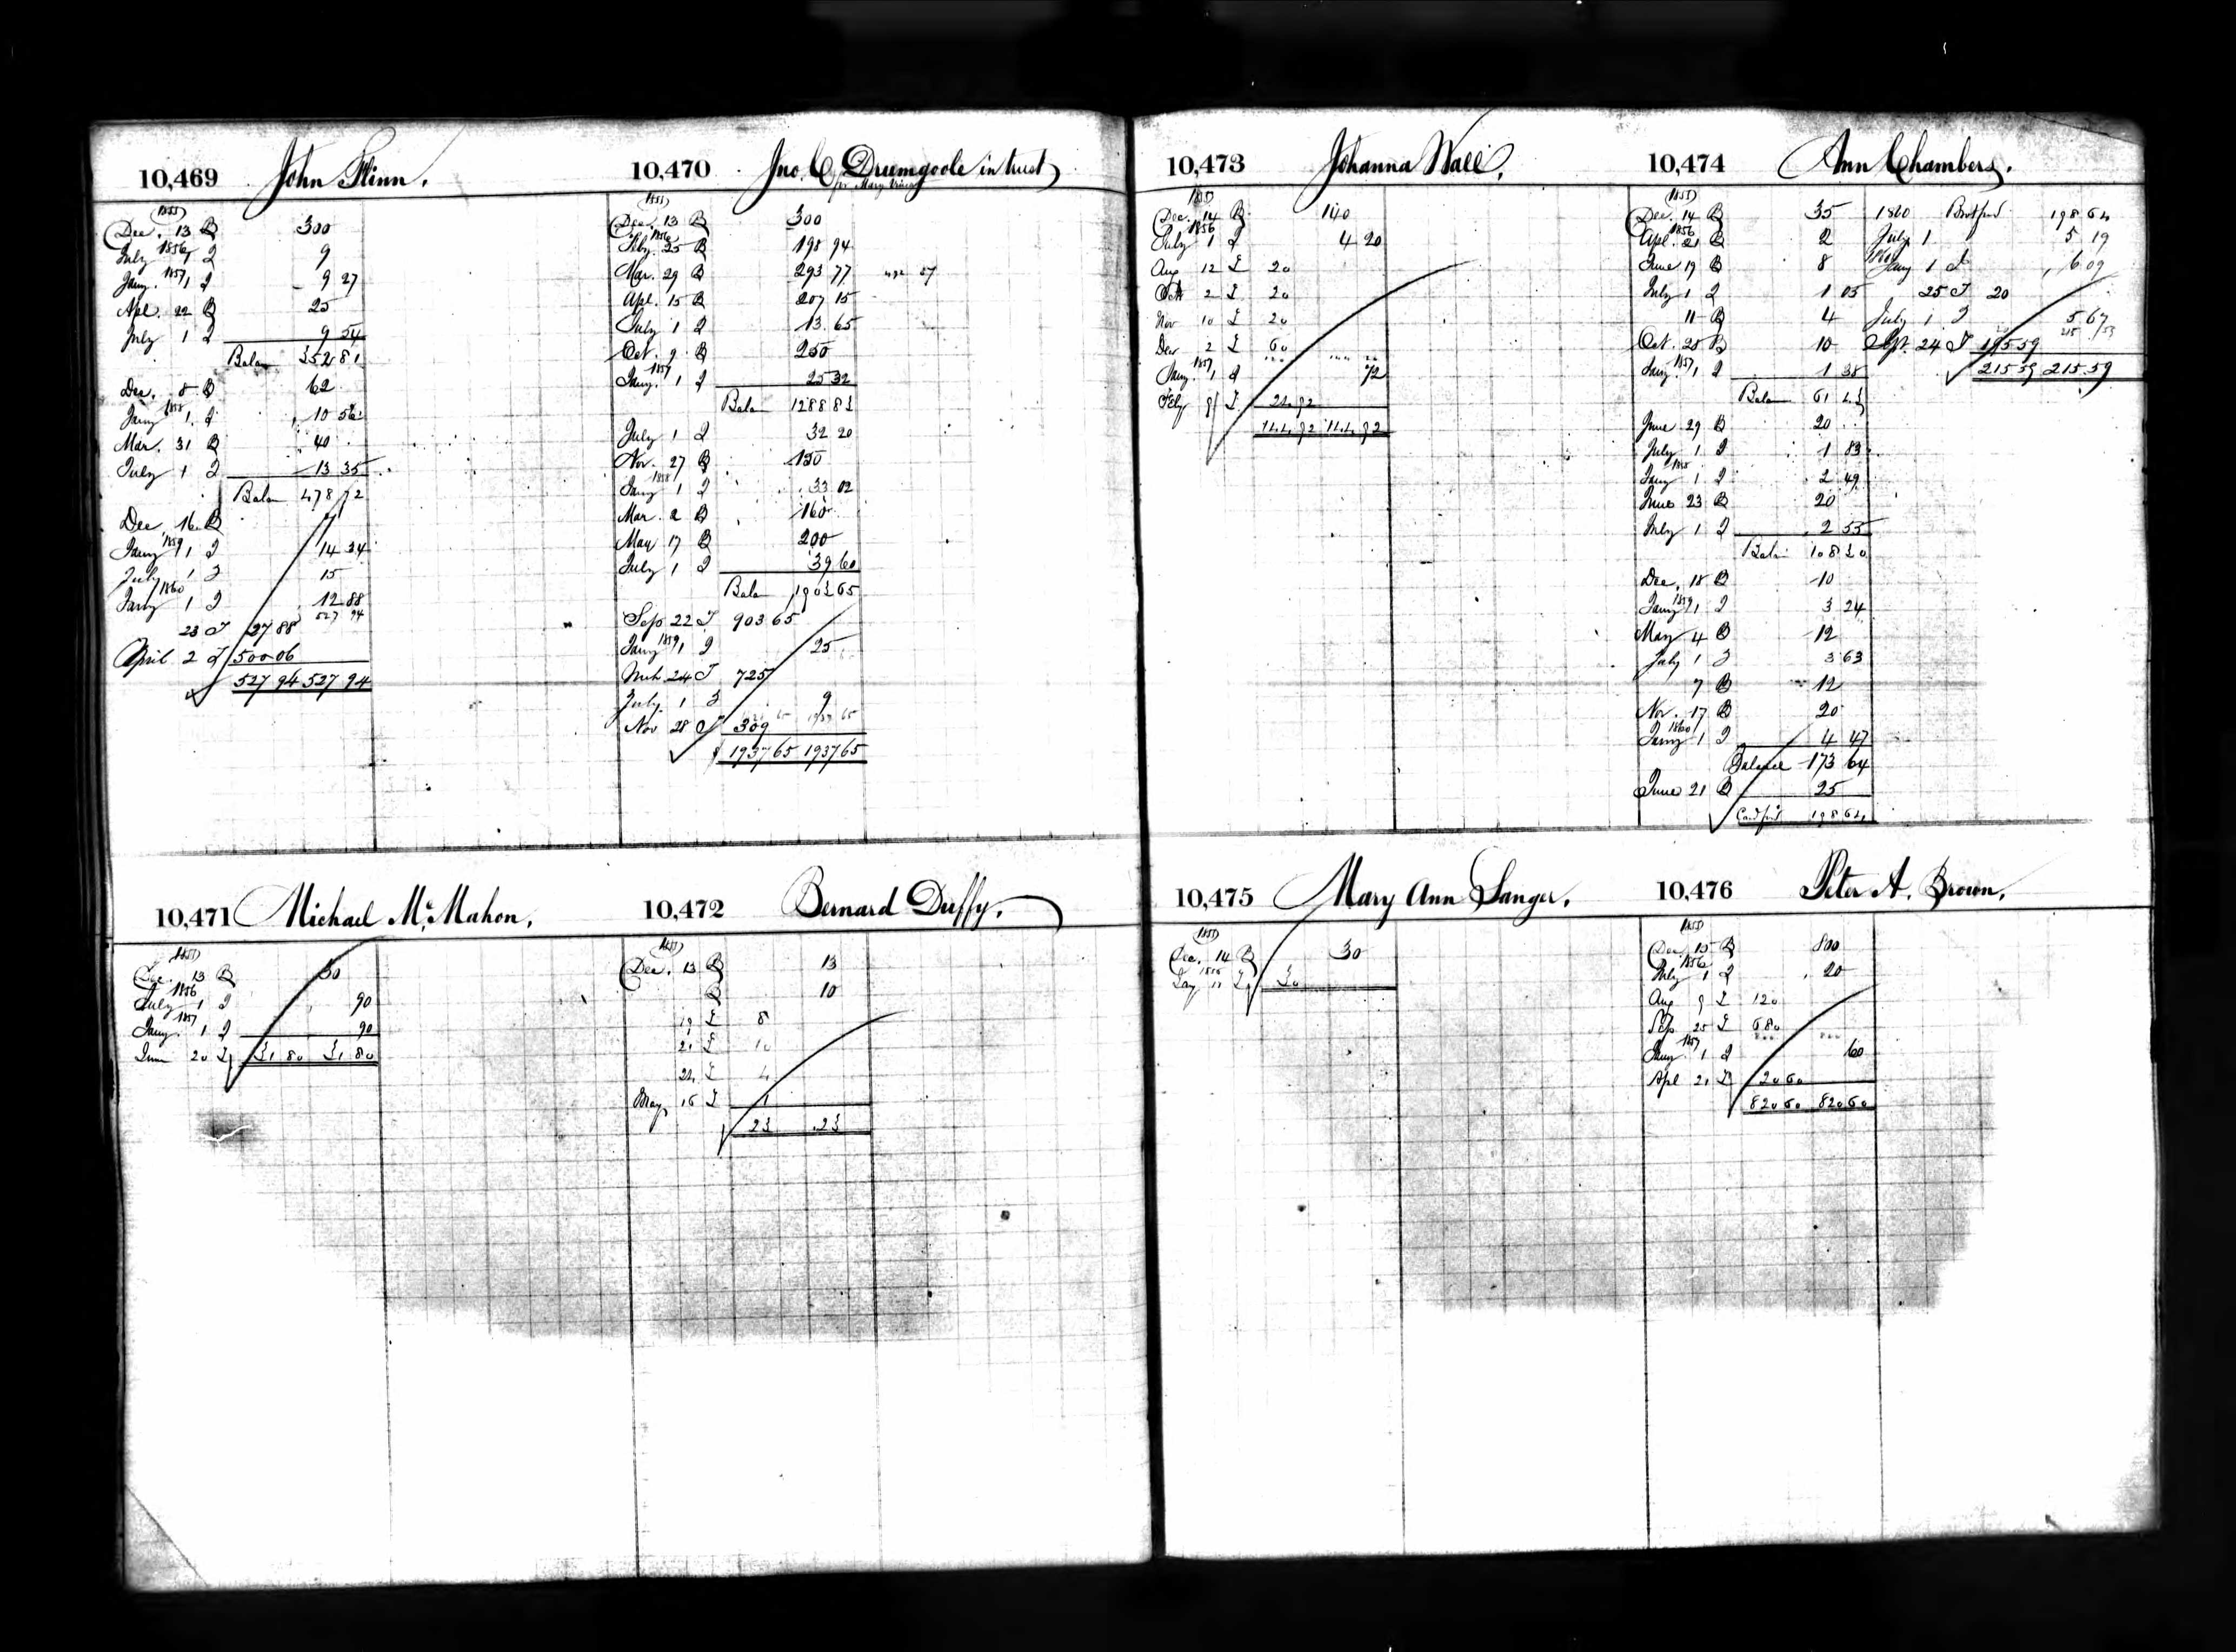 10,469 John Flinn.
1855
Dec. 13 B 300
1856
July 1 I 9
1857
Jany. 1 I 9 27
Apl. 22 B 25
July 1 I 9 54
Balan 352 81
Dec. 8 B 62
1858
Jany 1 I 10 56
Mar. 31 B 40
July 1 I 13 35
Balan 478 72
Dec 16 B
1859
Jany 1 I 14 34
July 1 I 15
1860
Jany 1 I 12 88
527 94
23 27 88
April 2 500 06
527 94 527 94
10,470 Jno. C. Drumgoole in trust
for Mary
1855
Dec. 13 B 300
1856
Feby. 25 B 198 94
Mar. 29 B 293 77
Apl. 15 B 207 15
July 1 I 13 65
Oct. 9 B 250
1857
Jany. 1 I 25 32
Balan 1288 83
July 1 I 32 20
Nov. 27 B 150
1858
Jany 1 I 33 02
Mar. 2 B 160
May 17 B 200
July 1 I 39 60
Balan 1903 65
Sep 22 903 65
1859
Jany 1 I 25
Mch 24 725
July 1 I 9
Nov 28 309
$ 1937 65 1937 65
10,471 Michael McMahon.
1855
Dec. 13 B 30
1856
July 1 I 90
1857
Jany. 1 I 90
June 20 31 80 31 80
10,472 Bernard Duffy.
1855
Dec. 13 B 13
B 10
19 8
21 10
24 4
May 16 1
23 23
10,473 Johanna Wall.
1855
Dec. 14 B 140
1856
July 1 I 4 20
Aug 12 20
Oct 2 20
Nov 10 20
Dec 2 60
1857
Jany. 1 I 72
Feby 9 24 92
144 92 144 92
10,474 Ann Chambers.
1855
Dec. 14 B 35
1856
Apl. 21 B 2
June 19 B 8
July 1 I 1 05
11 B 4
Oct. 25 B 10
1857
Jany. 1 I 1 38
Balan 61 43
June 29 B 20
July 1 I 1 83
1858
Jany 1 I 2 49
June 23 B 20
July 1 I 2 55
Balan 108 30
Dec. 18 B 10
1859
Jany 1 I 3 24
May 4 B 12
July 1 I 3 63
7 B 12
Nov. 17 B 20
1860
Jany 1 I 4 47
Balance 173 64
June 21 B 25
Card ford 198 64
1860 Brot ford 198 64
July 1 5 19
Jany 1 I 6 09
25 20
July 1 I 5 67
Sept. 24 195 59
215 59 215 59
10,475 Mary Ann Sanger.
1855
Dec. 14 B 30
1856
Jany 11 30
10,476 Peter A. Brown.
1855
Dec. 15 B 800
1856
July 1 I 20
Aug 9 120
Sep 25 680
1857
Jany. 1 I 60
Apl 21 20 60
820 60 820 60